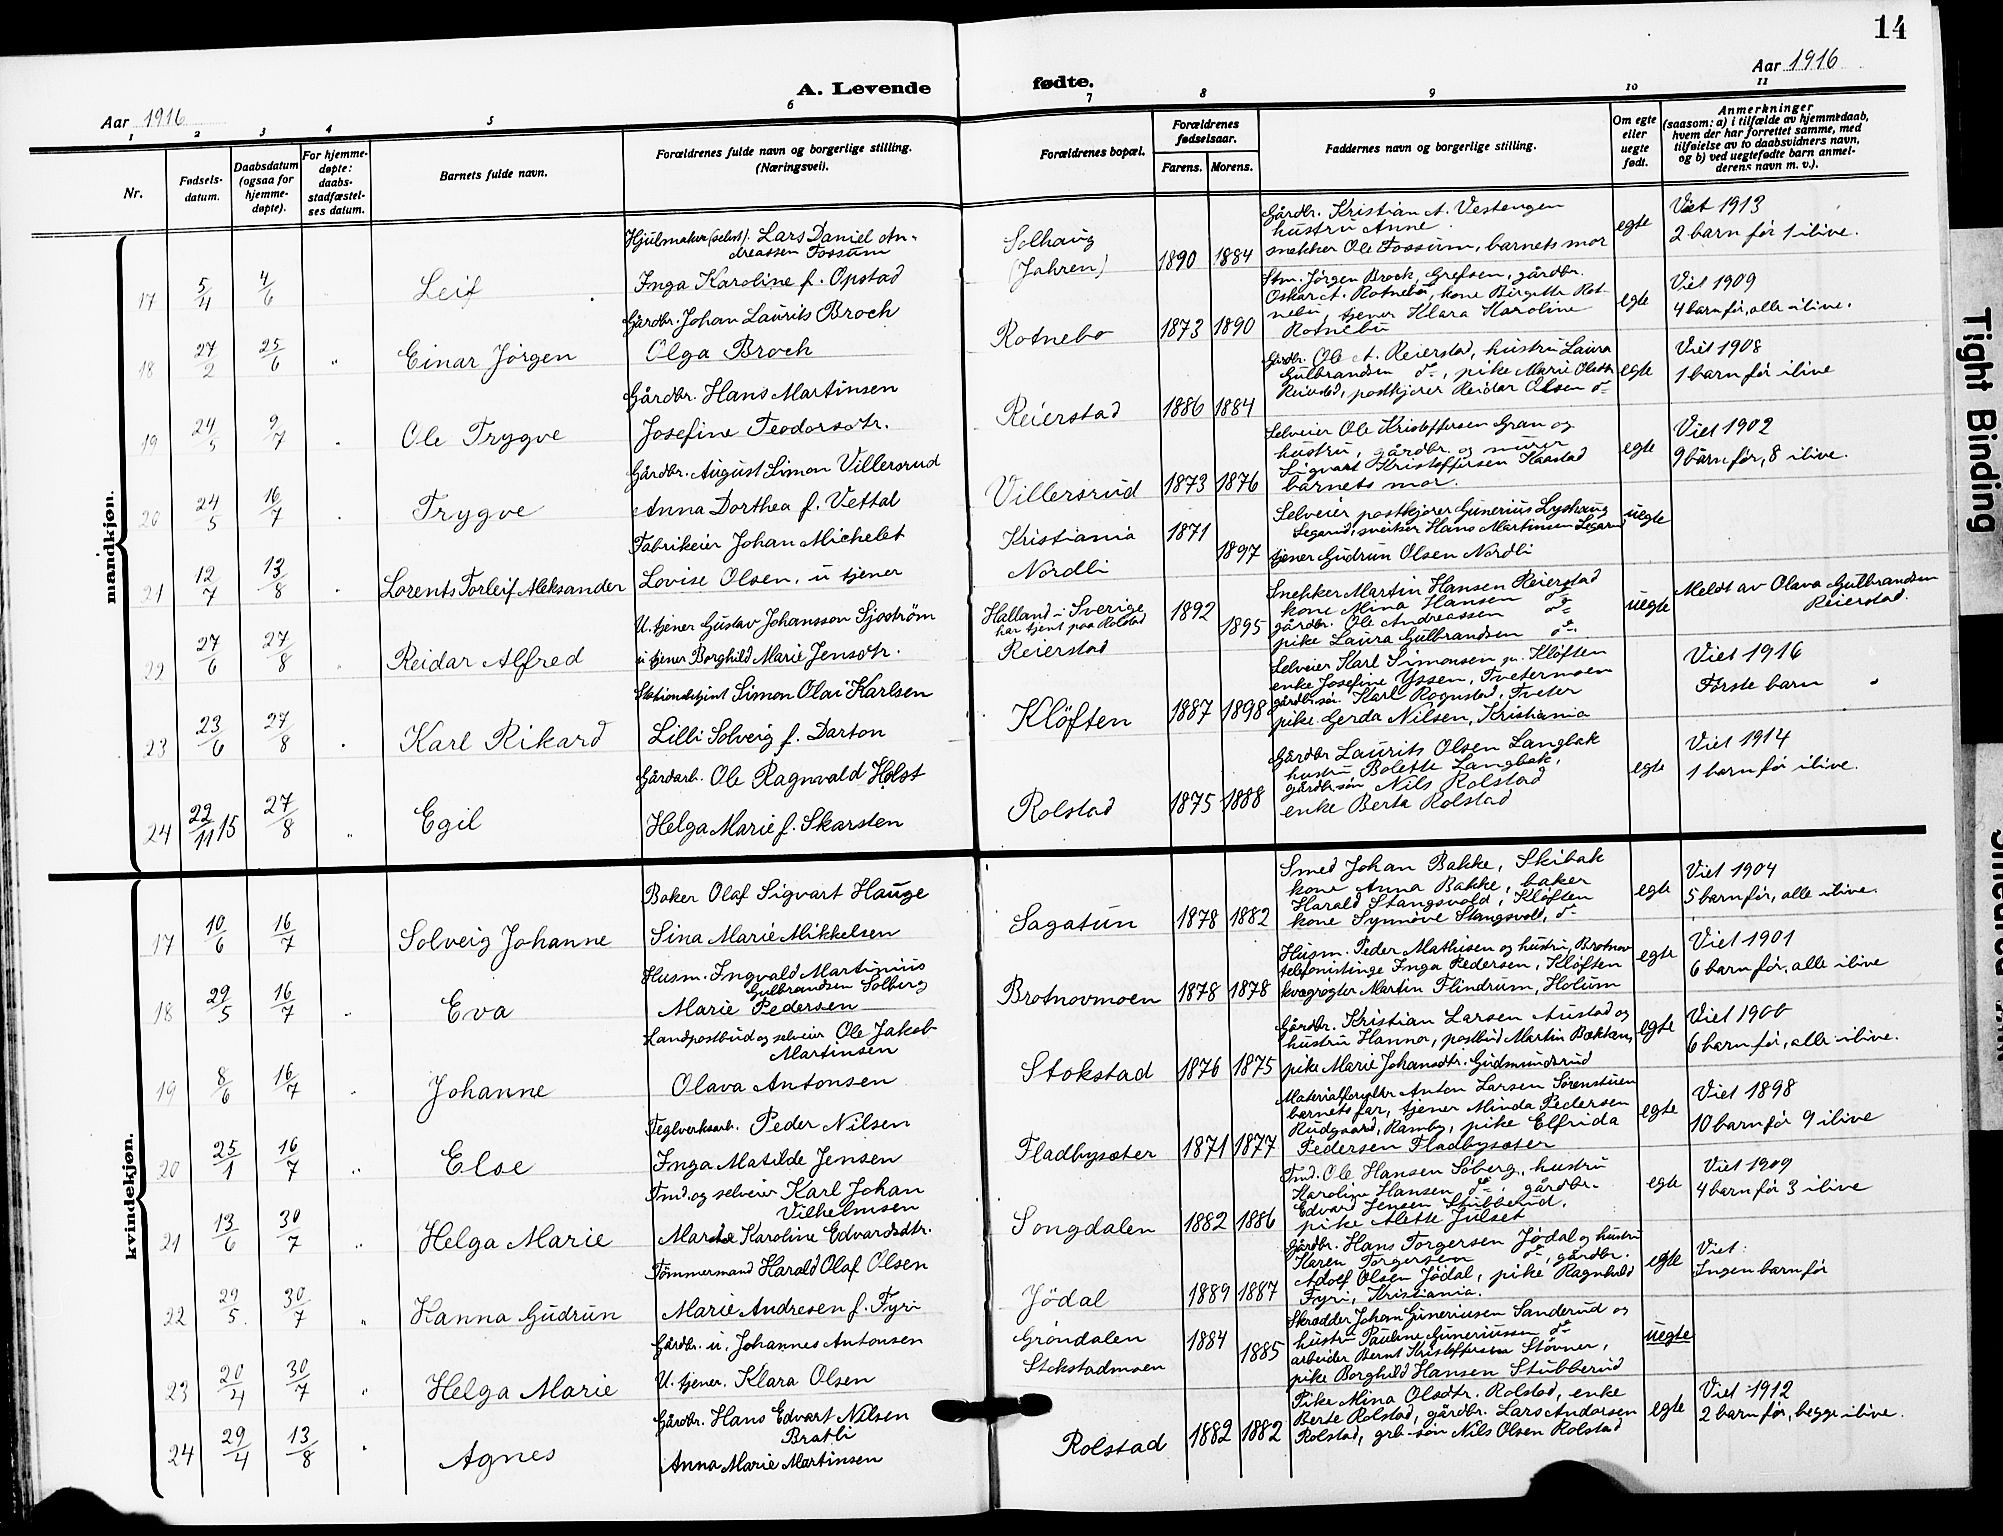 14
Aar 1916
A. Levende
fødte.
Aar 1916
1 2 3 4 5 6 7 8 9 10 11
Nr.
Fødsels-
datum.
Daabsdatum
(ogsaa for
hjemme-
døpte).
For hjemme-
døpte:
daabs-
stadfæstel-
ses datum.
Barnets fulde navn.
Forældrenes fulde navn og borgerlige stilling.
(Næringsvei).
Forældrenes bopæl.
Forældrenes
fødselsaar.
Farens. Morens.
Faddernes navn og borgerlige stilling.
Om egte
eller
uegte
født.
Anmerkninger
(saasom: a) i tilfælde av hjemmedaab,
hvem der har forrettet samme, med
tilføielse av to daabsvidners navn,
og b) ved uegtefødte barn anmel-
derens navn m. v.).
mandkjøn.
17 5/4 4/6 Leif
Hjulmaker (selvst). Lars Daniel An-
dreassen Fossum
Inga Karoline f. Opstad
Solhaug
(Jahren)
1890 1884
Gårdbr. Kristian A. Vestengen
hustru Anne
snekker Ole Fossum, barnets mor
egte
Viet 1913
2 barn før 1 ilive.
18 27/2 25/6 " Einar Jörgen
Gårdbr. Johan Laurits Broch
Olga Broch
Rotnebo
1873 1890
Stm. Jörgen Brock, Grefsen, gårdbr.
Oskar A. Rotnebu, kone Birgitte Rot-
nebu, tjener Klara Karoline
Rotnebu
egte
Viet 1909
4 barn før, alle ilive.
19 24/5 9/7 " Ole Trygve
Gårdbr. Hans Martinsen
Josefine Teodorsdtr.
Reierstad
1886 1884
Gårdbr. Ole A. Reierstad, hustru Laura
Gulbrandsen do, pike Marie Olsdtr
Reierstad, postkjører Reidar Olsen do
egte
Viet 1908
1 barn før ilive
20 24/5 16/7 " Trygve
Gårdbr. August Simon Villersrud
Anna Dorthea f. Vettal
Villersrud
1873 1876
Selveier Ole Kristoffersen Gran og
hustru, gårdbr. og murer
Sigvart Kristoffersen Haastad
barnets mor.
egte
Viet 1902
9 barn før, 8 ilive.
21 12/7 13/8 " Lorents Torleif Aleksander
Fabrikeier Johan Michelet
Lovise Olsen, u tjener
Kristiania
Nordli
1871
1897
Selveier postkjører Gunerius Lyshaug
Legarud, sveitser Hans Martinsen Legarud
tjener Gudrun Olsen Nordli
uegte
22 27/6 27/8 " Reidar Alfred
U. tjener Gustav Johansson Sjøström
u tjener Borghild Marie Jensdtr.
Halland i Sverige
har tjent paa Rolstad
Reierstad
1892
1895
Snekker Martin Hansen Reierstad
kone Mina Hansen do
gårdbr. Ole Andreassen do
pike Laura Gulbrandsen do
uegte
Meldt av Olava Gulbrandsen
Reierstad.
23 23/6 27/8 " Karl Rikard
Stationsbetjent Simon Olai Karlsen
Lilli Solveig f. Darton
Klöften
1887 1898
Selveier Karl Simonsen jr. Klöften
enke Josefine Yssen, Tvetermoen
gårdbr.søn. Karl Rognstad, Tveter
pike Gerda Nilsen, Kristiania
Viet 1916
Første barn
24 22/11 15 27/8 " Egil
Gårdarb. Ole Ragnvald Holst
Helga Marie f. Skarsten
Rolstad
1875 1888
Gårdbr Laurits Olsen Langbak
hustru Bolette Langbak,
gårdbr.søn Nils Rolstad
enke Berta Rolstad
egte
Viet 1914
1 barn før ilive.
kvindekjøn.
17 10/6 16/7 Solveig Johanne
Baker Olaf Sigvart Hauge
Sina Marie Mikkelsen
Sagatun
1878 1882
Smed Johan Bakke, Skibak
kone Anna Bakke, baker
Harald Stangsvold, Klöften
kone Synnöve Stangsvold, do
egte
Viet 1904
5 barn før, alle ilive.
18 29/5 16/7 " Eva
Husm. Ingvald Martinius
Gulbrandsen Solberg
Marie Pedersen
Brotnovmoen
1878 1878
Husm. Peder Mathisen og hustru, Brotnov
telefonistinge Inga Pedersen, Klöften
kvægrögter Martin Flindrum, Holum
egte
Viet 1901
6 barn før, alle ilive
19 8/6 16/7 " Johanne
Landpostbud og selveier Ole Jakob
Martinsen
Olava Antonsen
Stokstad
1876 1875
Gårdbr. Kristian Larsen Austad og
hustru Hanna, postbud Martin Bakken,
pike Marie Johansdtr. Gudmundsrud
egte
Viet 1900
6 barn før, alle ilive.
20 25/1 16/7 " Else
Teglverksarb. Peder Nilsen
Inga Matilde Jensen
Fladbysæter
1871 1877
Materialforvalter Anton Larsen Sörenstuen
barnets far, tjener Minda Pedersen
Rudgaard, Ramby, pike Elfrida
Pedersen Fladbysæter
egte
Viet 1898
10 barn før 9 ilive
21 13/6 30/7 " Helga Marie
Tmd. og selveier Karl Johan
Vilhelmsen
Martea Karoline Edvardsdtr.
Songdalen
1882 1886
Tmd. Ole Hansen Söberg, hustru
Karoline Hansen do, gårdbr.
Edvard Jensen Stubberud,
pike Alette Julset
egte
Viet 1909
4 barn før 3 ilive
22 29/5. 30/7 " Hanna Gudrun
Tömmermand Harald Olaf Olsen
Marie Andresen f. Fyri
Jödal
1889 1887
Gårdbr. Hans Torgersen Jödal og hustru
Karen Torgersen do, gårdbr.
Adolf Olsen Jödal, pike Ragnhild
Fyri, Kristiania.
egte
Viet:
Ingen barn før
23 20/4 30/7 " Helga Marie
Gårdbr. u. Johannes Antonsen
U. tjener. Klara Olsen
Gröndalen
Stokstadmoen
1884
1885
Skrædder Johan Guneriusen Sanderud og
hustru Pauline Guneriussen do
arbeider Bernt Kristoffersen Stövner,
pike Borghild Hansen Stubberud
uegte
24 29/4 13/8 " Agnes
Gårdbr. Hans Edvart Nilsen
Bratli
Anna Marie Martinsen
Rolstad
1882 1882
Pike Mina Olsdtr. Rolstad, enke
Berte Rolstad, gårdbr. Lars Andersen
Rolstad, grb-søn Nils Olsen Rolstad
egte
Viet 1912
2 barn før, begge ilive.
Tight Binding